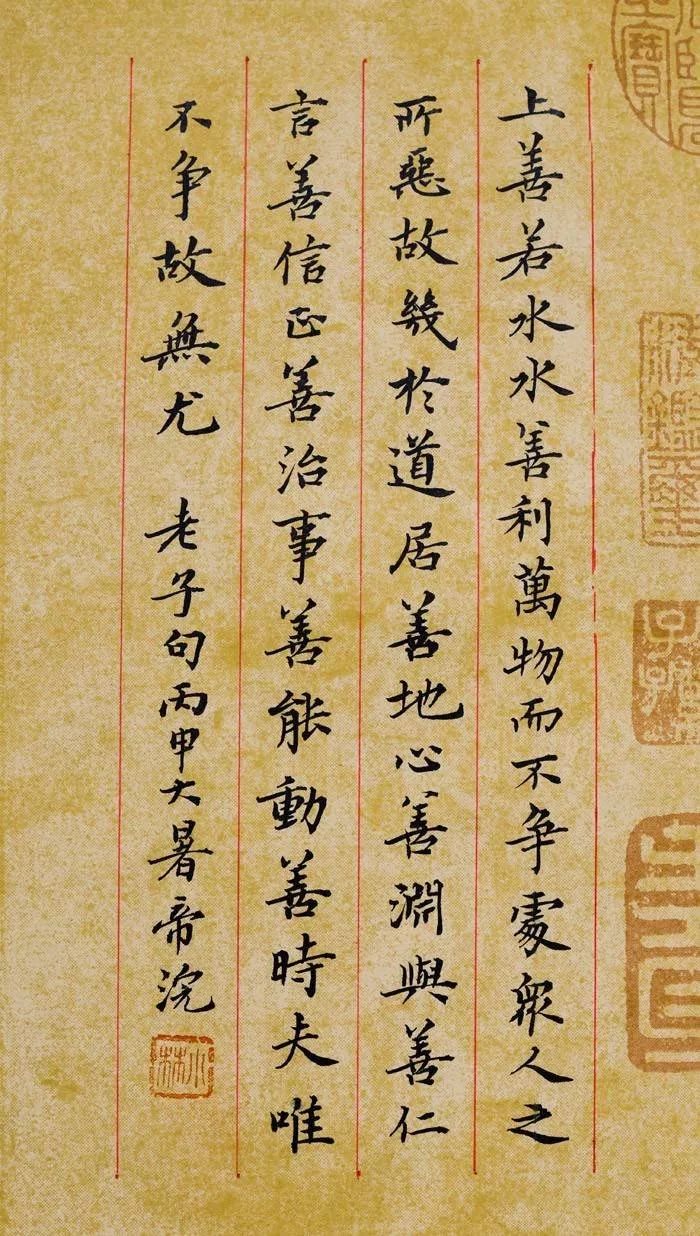 上善若水水善利萬物而不争處眾人之
所惡故幾於道居善地心善淵與善仁
言善信正善治事善能動善時夫唯
不争故無尤 老子句丙申大暑帝浣